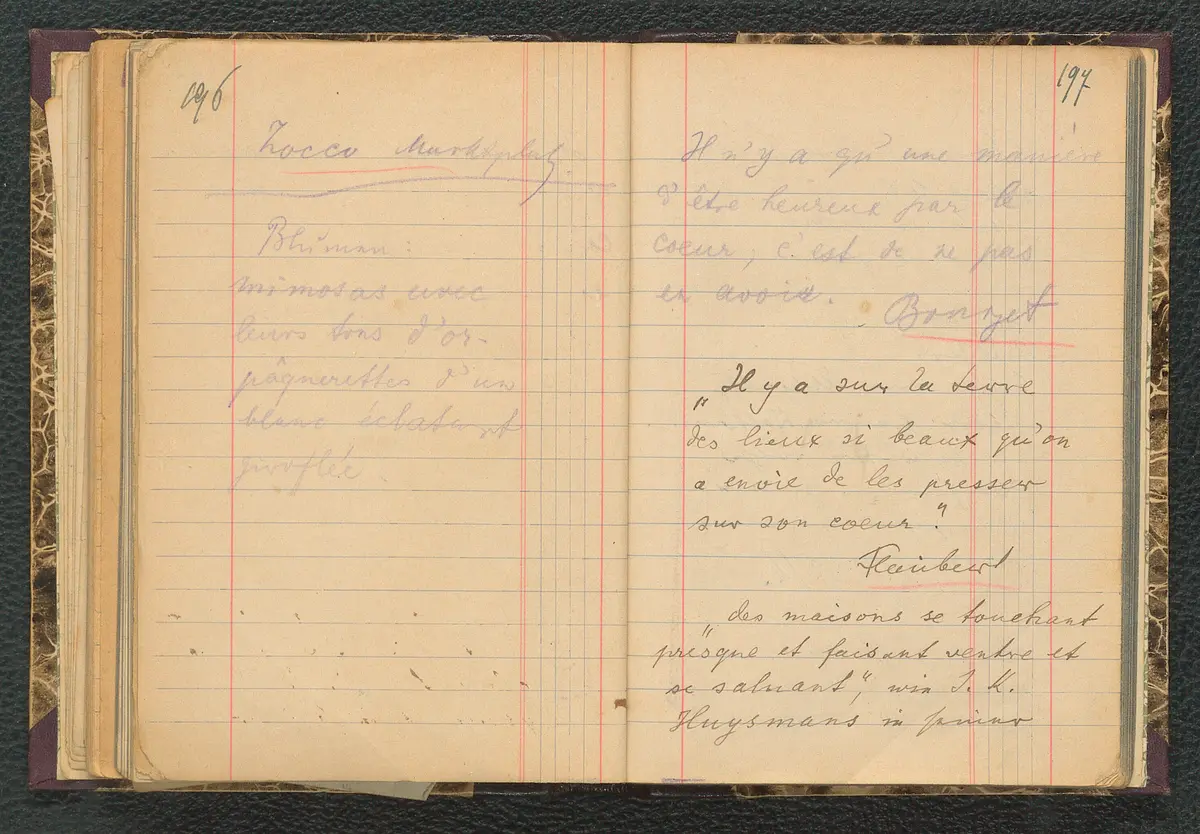 196
Zocco Marktplatz
Blumen:
mimosas avec
leurs tons d'or-
pâquerettes d'un
blanc éclatant
giroflée
197
Il n'y a qu'une manière
d'être heureux par le
coeur, c'est de ne pas
en avoir.
Bourget
„Il y a sur la terre
des lieux si beaux qu'on
a envie de les presser
sur son coeur."
Flaubert
„des maisons se touchant
presque et faisant ventre et
se saluant", wie J. K.
Huysmans in seiner